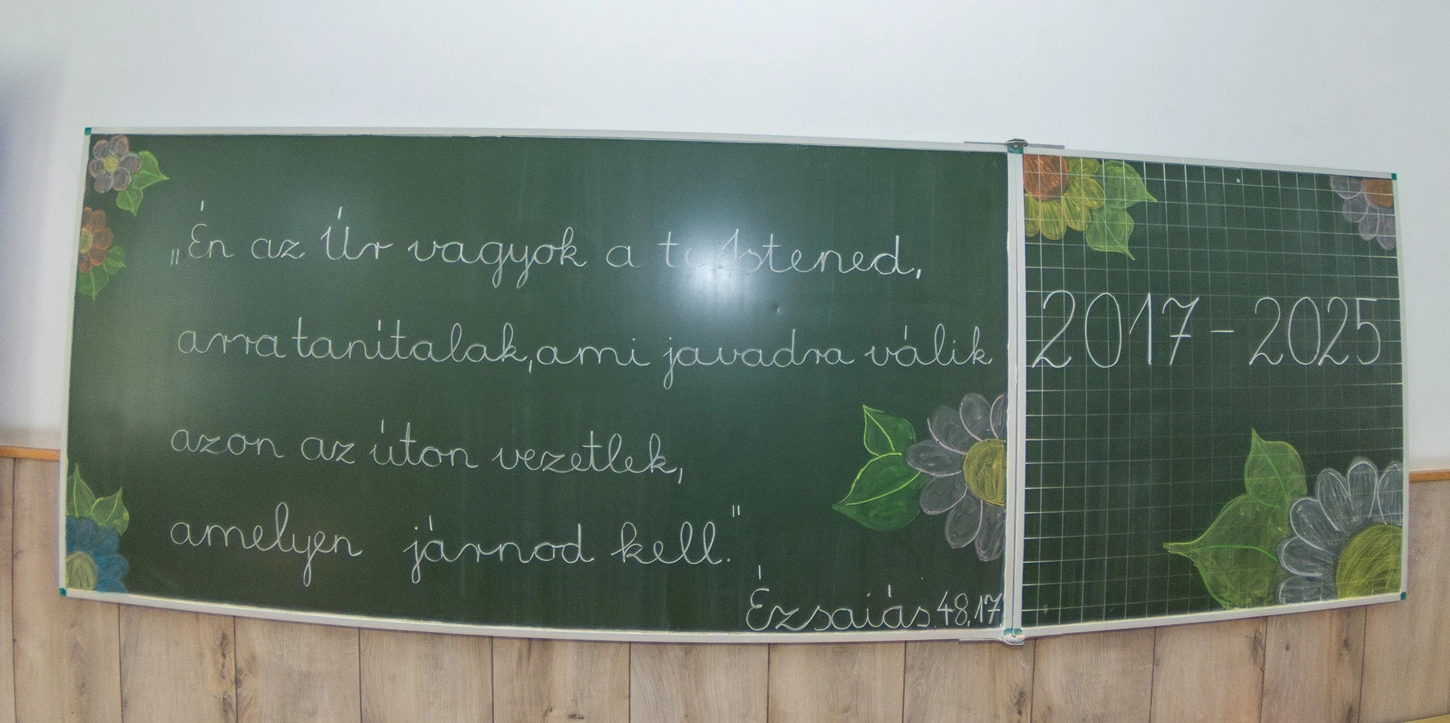 „Én az Úr vagyok a te Istened,
arra tanítalak, ami javadra válik
azon az úton vezetlek,
amelyen járnod kell."
Ézsaiás 48,17
2017 - 2025